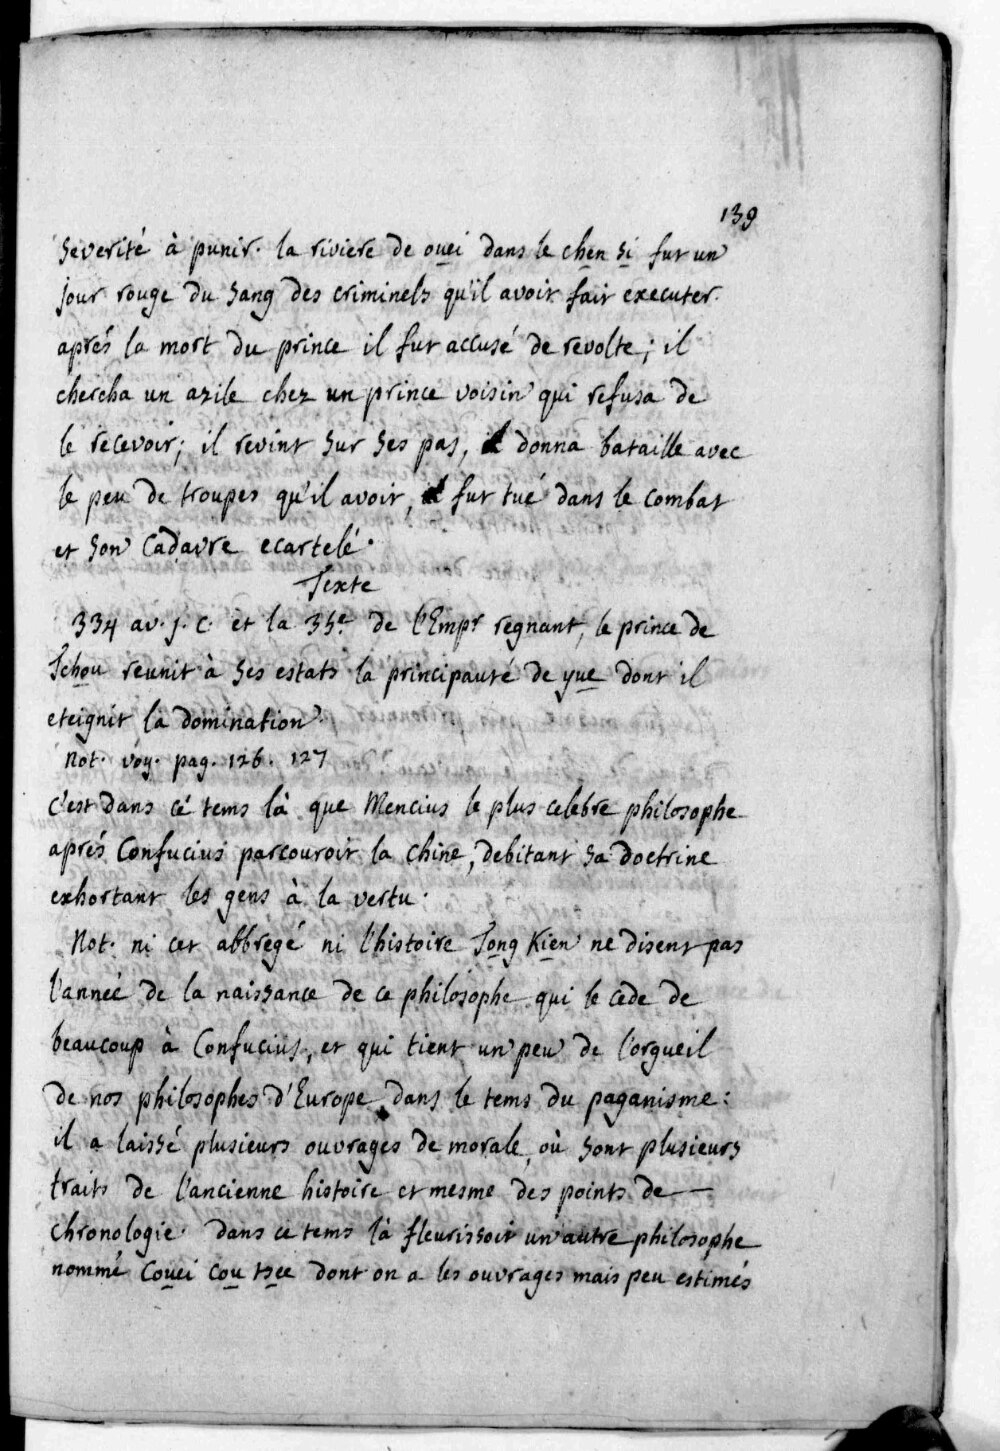 139
severité à punir. la riviere de ouei dans le chen si fut un
jour rouge du sang des criminels qu'il avoit fait executer.
aprés la mort du prince il fut accusé de revolte; il
chercha un azile chez un prince voisin qui refusa de
le recevoir; il revint sur ses pas, il donna bataille avec
le peu de troupes qu'il avoit, il fut tué dans le combat
et son cadavre ecartelé.
Texte
334 av. j. c. et la 35e. de l'Empr regnant, le prince de
Tchou reunit à ses estats la principauté de yue dont il
eteignit la domination.
Not. voy. pag. 126. 127
c'est dans ce tems là que Mencius le plus celebre philosophe
aprés Confucius parcouroit la chine, debitant sa doctrine
exhortant les gens à la vertu.
Not. ni cet abbregé ni l'histoire Tong Kien ne disent pas
l'anneé de la naissance de ce philosophe qui le cede de
beaucoup à Confucius, et qui tient un peu de l'orgueil
de nos philosophes d'Europe dans le tems du paganisme:
il a laissé plusieurs ouvrages de morale, où sont plusieurs
traits de l'ancienne histoire et mesme des points de
chronologie. dans ce tems là fleurissoit un autre philosophe
nommé Couei cou tsee dont on a les ouvrages mais peu estimés